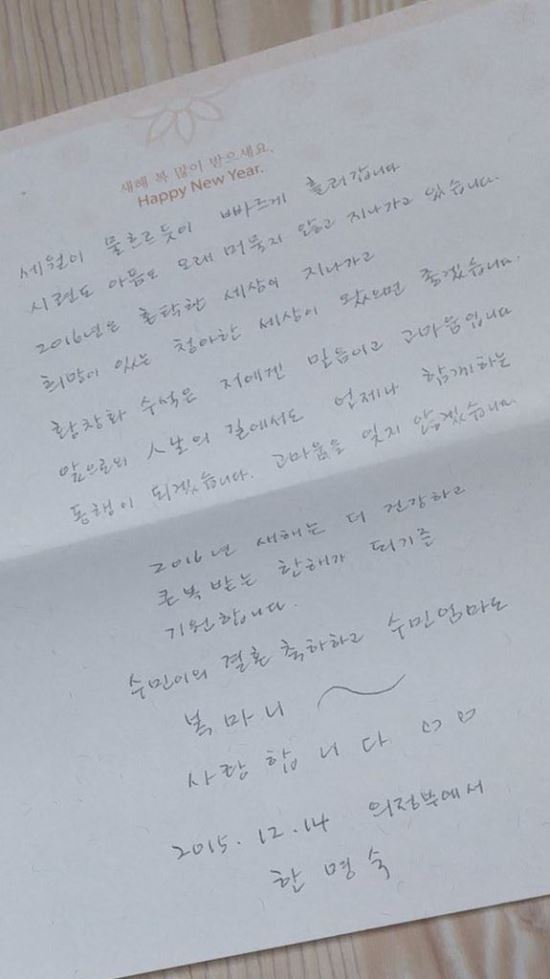 새해 복 많이 받으세요.
Happy New Year.
세월이 물흐르듯이 빠르게 흘러갑니다
시련도 아픔도 오래 머물지 않고 지나가고 있습니다.
2016년은 혼탁한 세상이 지나가고
희망이 있는 청아한 세상이 왔으면 좋겠습니다.
황창화 수석은 저에겐 믿음이고 고마움입니다
앞으로의 人生의 길에서도 언제나 함께하는
동행이 되겠습니다. 고마움을 잊지 않겠습니다.
2016년 새해는 더 건강하고
큰복받는 한해가 되기를
기원합니다.
수민이의 결혼 축하하고 수민엄마도
복 마 니
사 랑 합 니 다 ♡♡
2015. 12. 14 의정부에서
한 명 숙